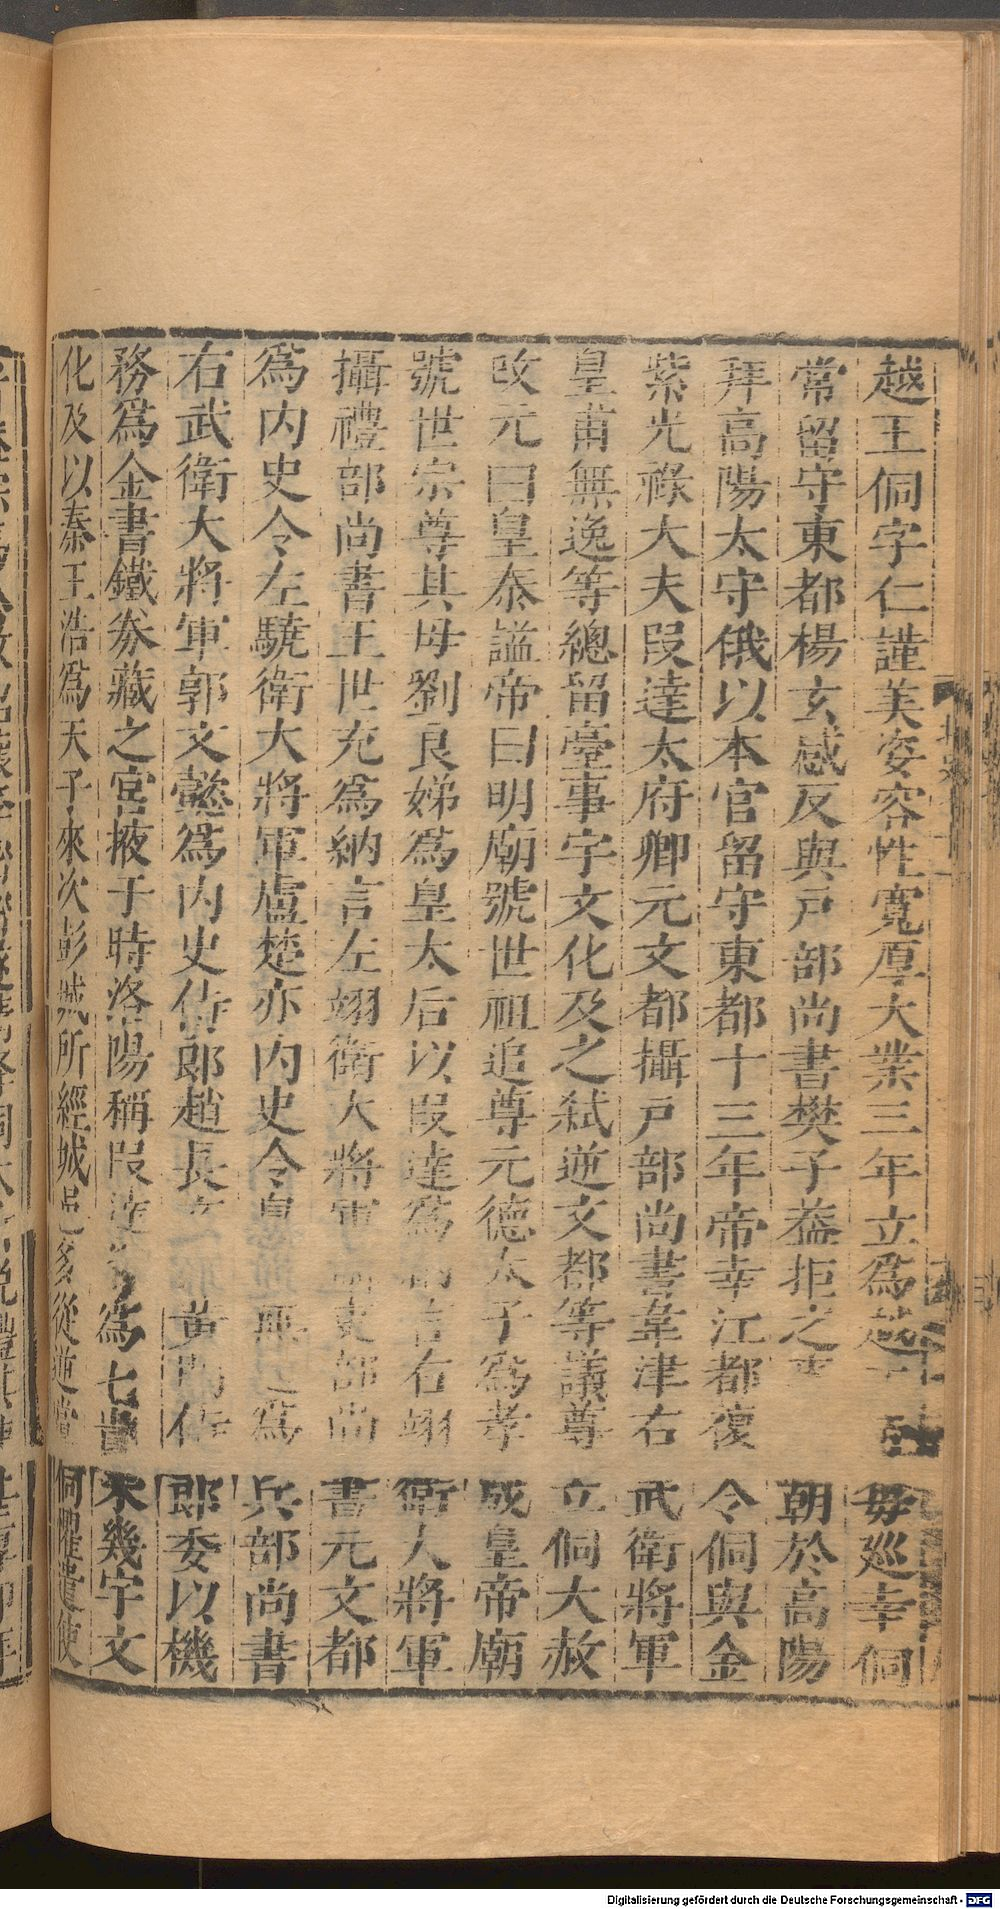 越王侗字仁謹美姿容性寬厚大業三年立爲越王 每巡幸侗
常留守東都楊玄感反與戸部尚書樊子蓋拒之 朝於高陽
拜高陽太守俄以本官留守東都十三年帝幸江都復令侗與金
紫光祿大夫段達太府卿元文都攝戸部尚書韋津右武衛將軍
皇甫無逸等總留臺事宇文化及之弑逆文都等議尊立侗大赦
改元曰皇泰謚帝曰明廟號世祖追尊元德太子爲孝成皇帝廟
號世宗尊其母劉良娣爲皇太后以段達爲納言右翊衛大將軍
攝禮部尚書王世充爲納言左翊衛大將軍 吏部尚書元文都
爲内史令左驍衛大將軍盧楚亦内史令皇 爲兵部尚書
右武衛大將軍郭文懿爲内史侍郎趙長文 黄門侍郎委以機
務爲金書鐵券藏之宮掖于時洛陽稱段達等爲七貴未幾宇文
化及以秦王浩爲天子來次彭城所經城邑多從逆黨侗懼遣使
Digitalisierung gefördert durch die Deutsche Forschungsgemeinschaft - DFG